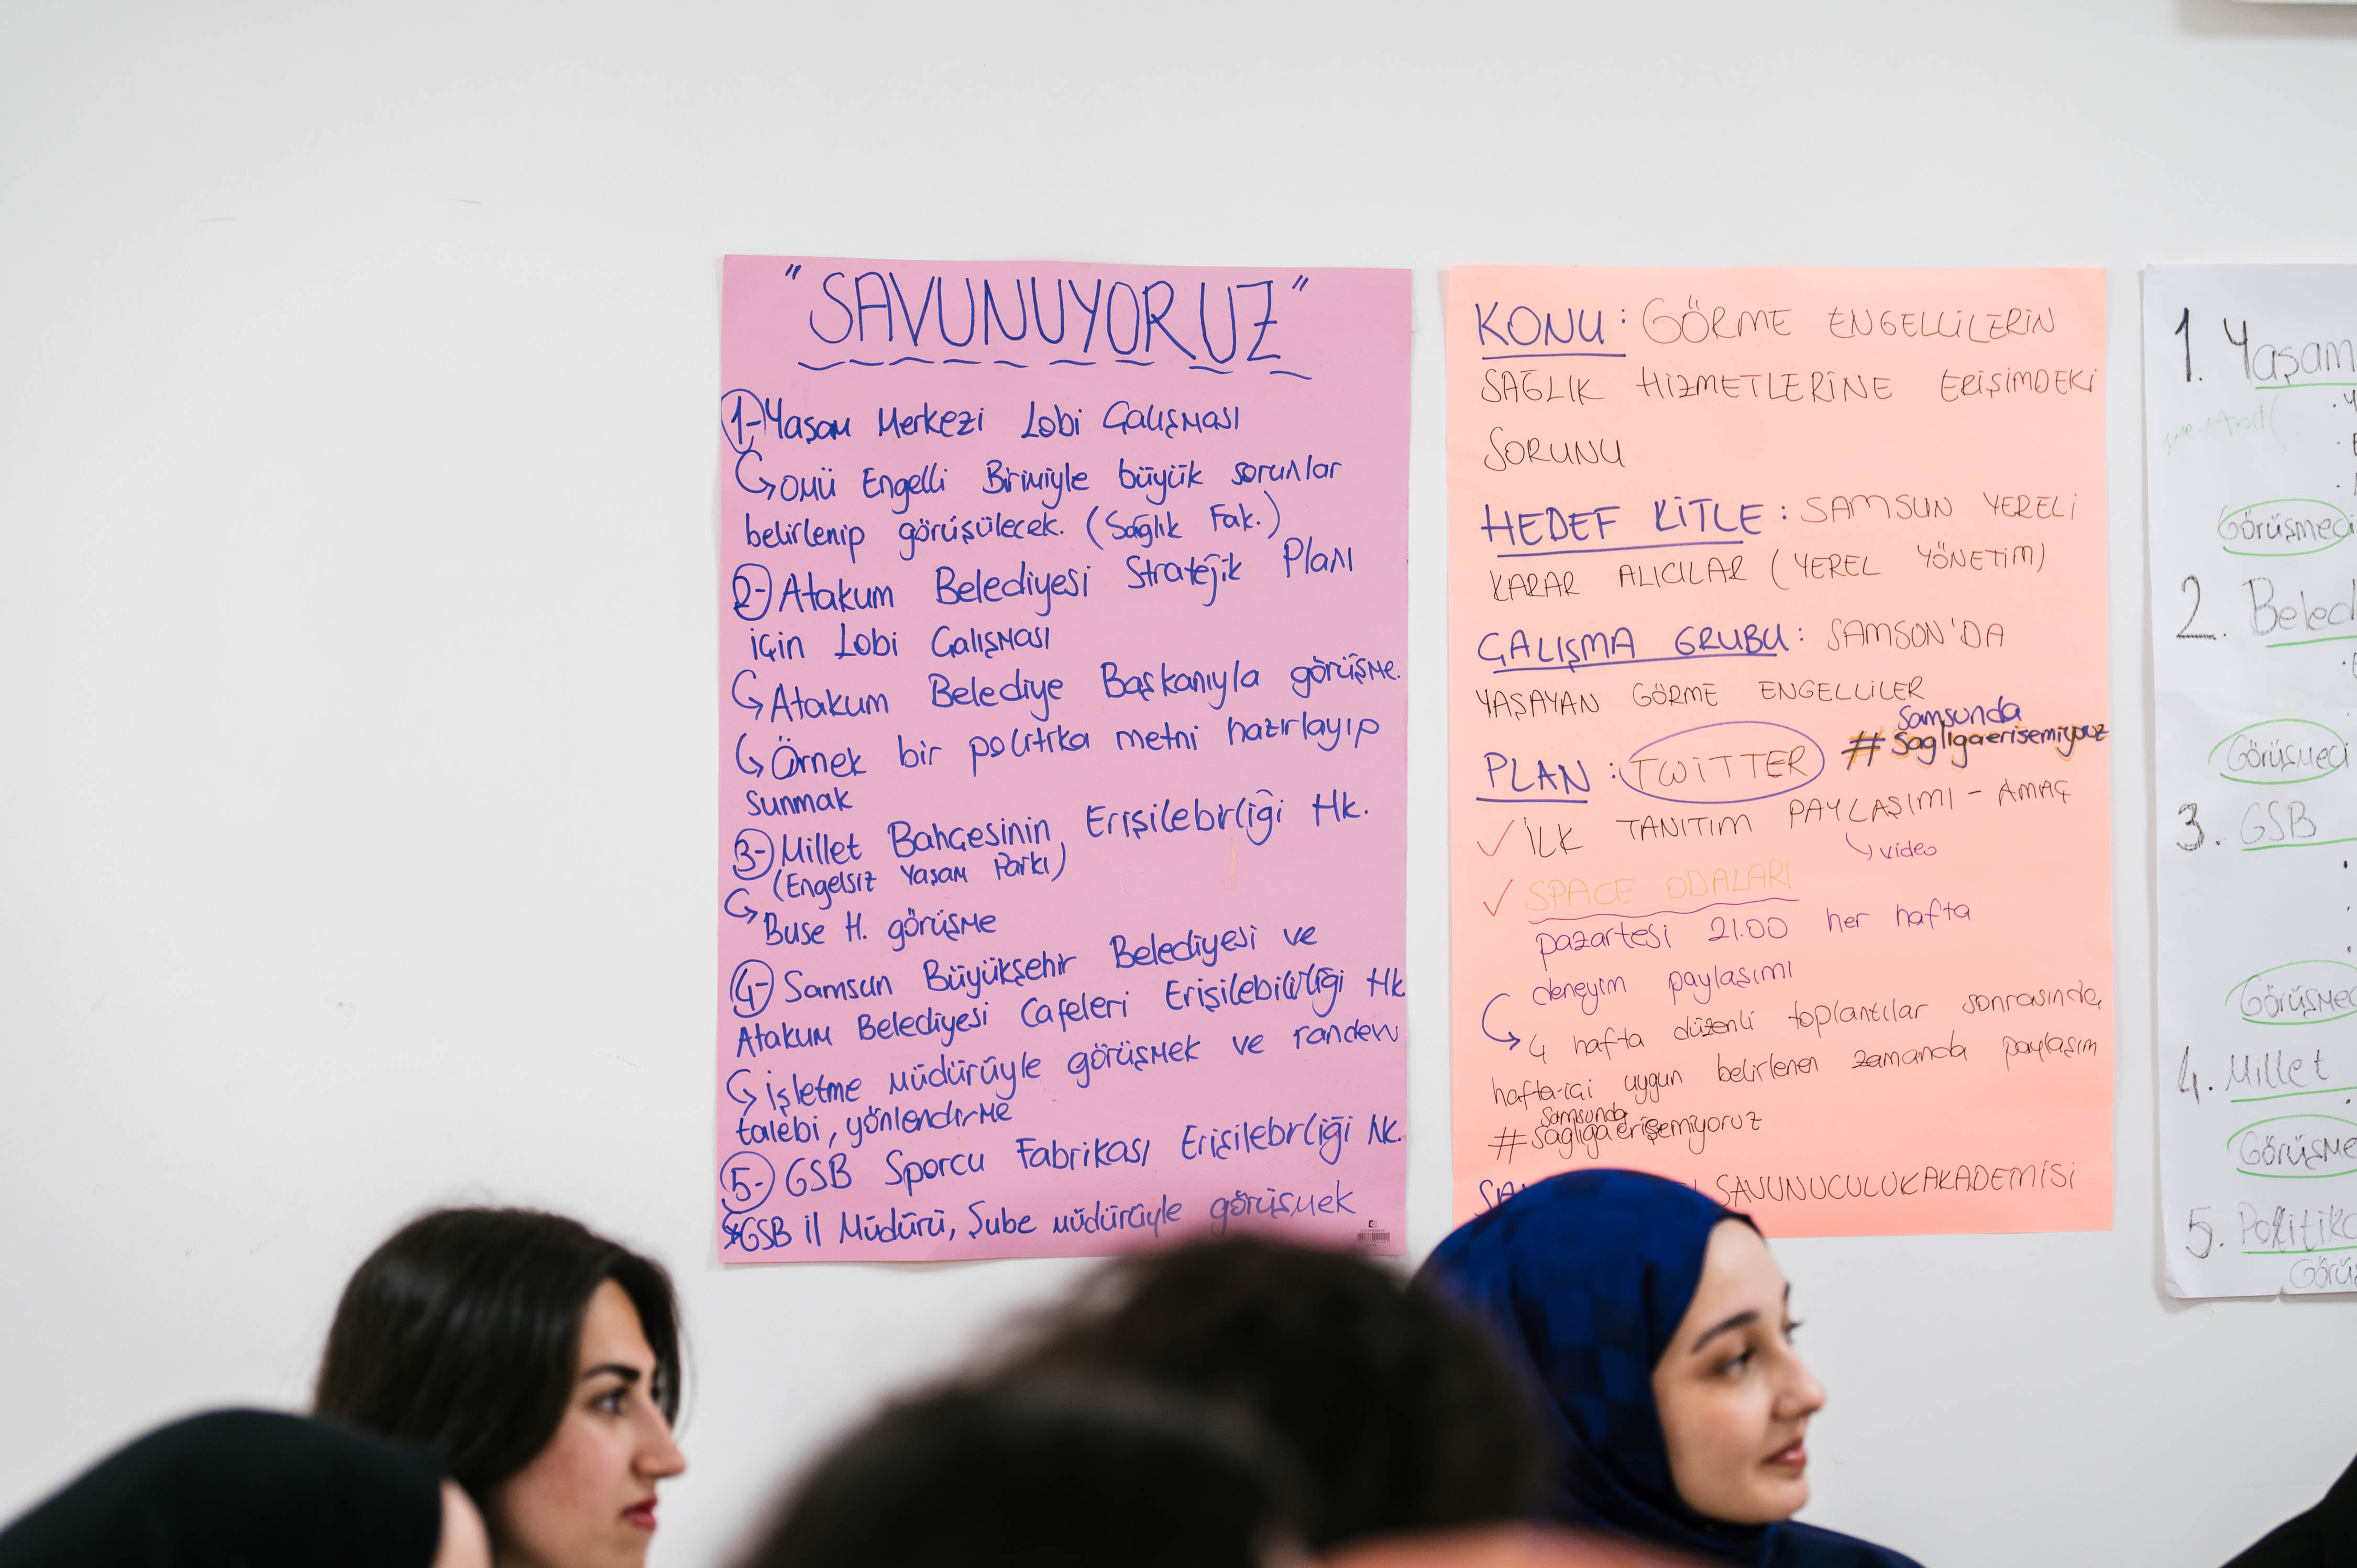 "SAVUNUYORUZ"
1- Yaşam Merkezi Lobi Çalışması
OMÜ Engelli Birimiyle büyük sorunlar
belirlenip görüşülecek. (Sağlık Fak.)
2- Atakum Belediyesi Stratejik Planı
için Lobi Çalışması
Atakum Belediye Başkanıyla görüşme.
Örnek bir politika metni hazırlayıp
sunmak
3- Millet Bahçesinin Erişilebirliği Hk.
(Engelsiz Yaşam Parkı)
Buse H. görüşme
4- Samsun Büyükşehir Belediyesi ve
Atakum Belediyesi Cafeleri Erişilebilirliği Hk
İşletme müdürüyle görüşmek ve randevu
talebi, yönlendirme
5- GSB Sporcu Fabrikası Erişilebirliği hk.
GSB il Müdürü, Şube müdürüyle görüşmek
KONU: GÖRME ENGELLİLERİN
SAĞLIK HİZMETLERİNE ERİŞİMDEKİ
SORUNU
HEDEF KİTLE: SAMSUN YERELİ
KARAR ALICILAR (YEREL YÖNETİM)
ÇALIŞMA GRUBU: SAMSON'DA
YAŞAYAN GÖRME ENGELLİLER
PLAN: TWİTTER #Samsunda
sagligaerisemiyoruz
✓ İLK TANITIM PAYLAŞIMI - AMAÇ
video
✓ SPACE ODALARI
pazartesi 21.00 her hafta
deneyim paylaşımı
4 hafta düzenli toplantılar sonrasında
hafta-içi uygun belirlenen zamanda paylaşım
#Samsunda
sagligaerişemiyoruz
SAVUNUCULUKAKADEMİSİ
1. Yaşam
Görüşmeci
2. Beled
Görüşmeci
3. GSB
Görüşmec
4. Millet
Görüşme
5. Politika
Görüş